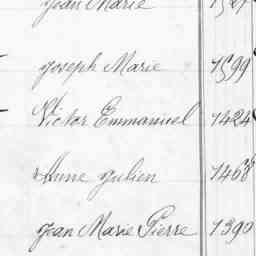 Jean Marie
Joseph Marie 1599
Victor Emmanuel 1424
Anne Julien 1468
Jean Marie Pierre 1390